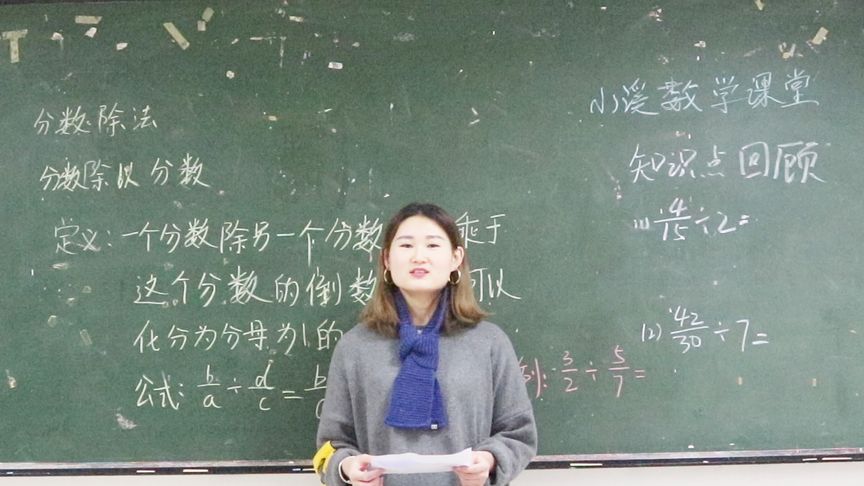 分数除法
分数除以分数
定义:一个分数除另一个分数 乘于
这个分数的倒数 可以
化分为分母为1的
公式: b/a ÷ d/c = b/
小溪数学课堂
知识点回顾
(1) 4/15 ÷ 2 =
(2) 42/30 ÷ 7 =
例: 3/2 ÷ 5/7 =